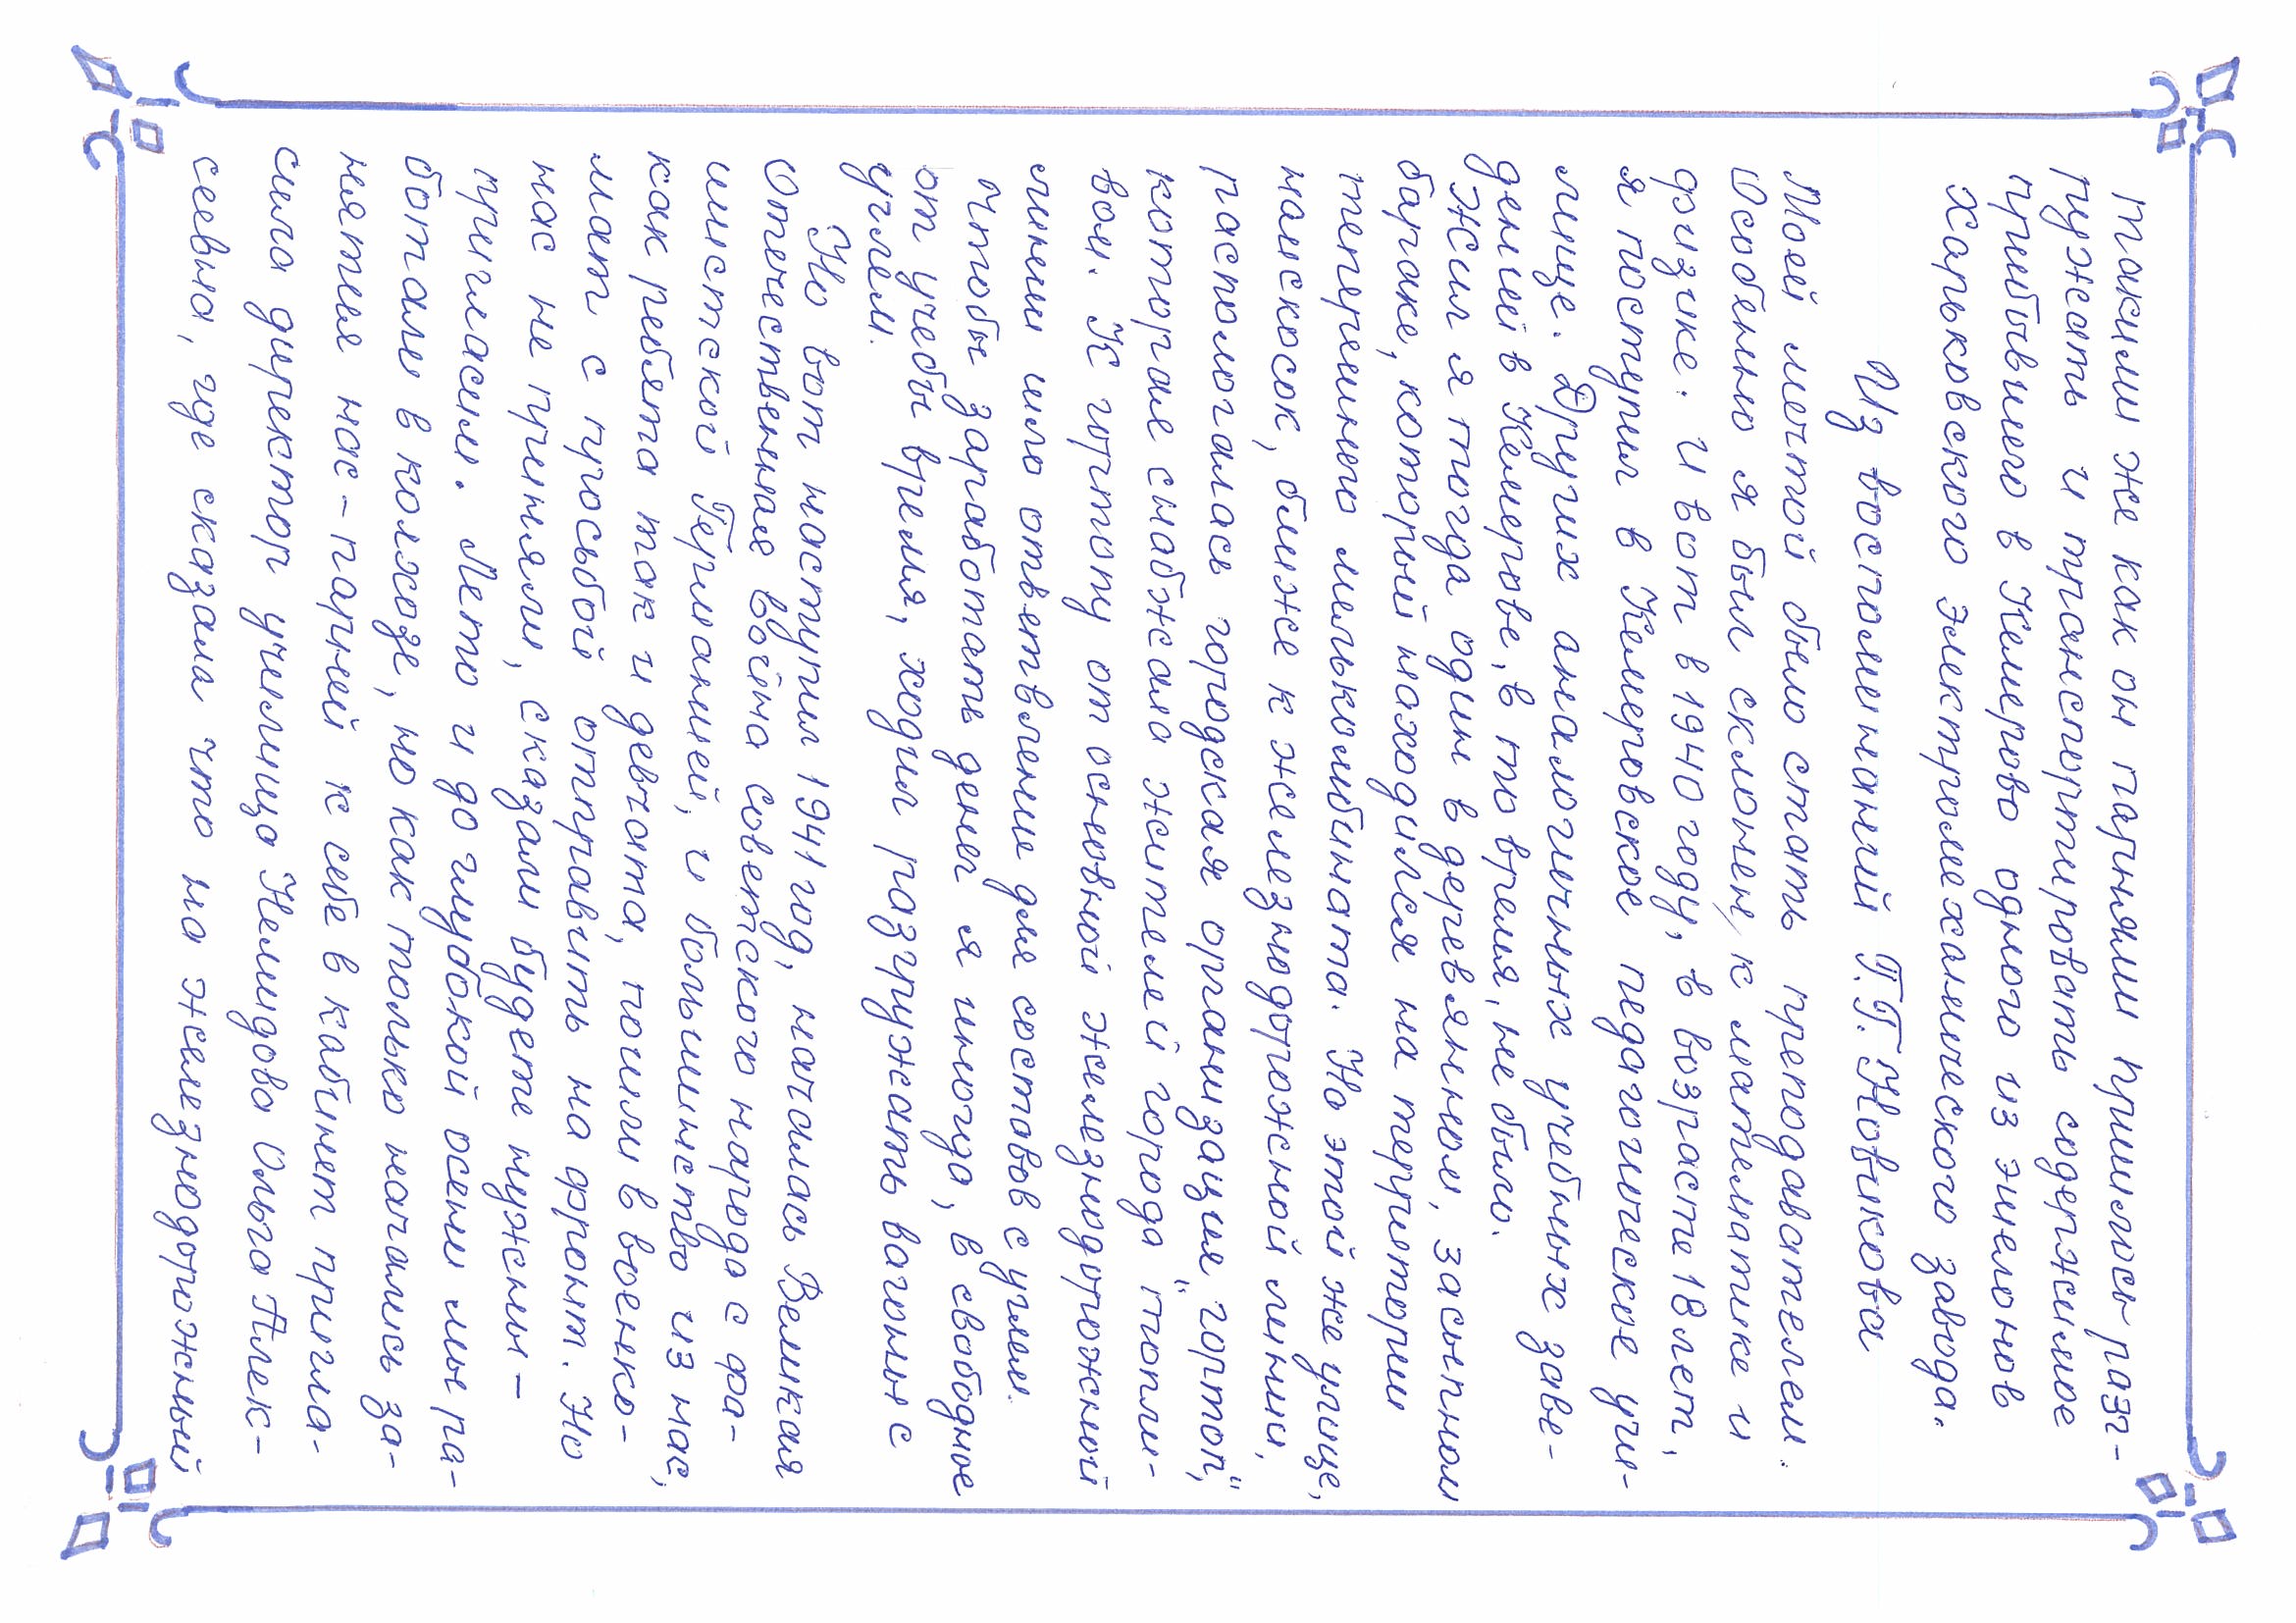 такими же как он парнями пришлось раз-
гружать и транспортировать содержимое
прибывшего в Кемерово одного из эшелонов
Харьковского электромеханического завода.
Из воспоминаний Г.Г. Новикова
Моей мечтой было стать преподавателем.
Особенно я был склонен к математике и
физике. И вот в 1940 году, в возрасте 18 лет,
я поступил в Кемеровское педагогическое учи-
лище. Других аналогичных учебных заве-
дений в Кемерове, в то время, не было.
Жил я тогда один в деревянном, засыпном
бараке, который находился на территории
теперешнего мелькомбината. На этой же улице,
наискосок, ближе к железнодорожной линии,
располагалась городская организация "гортоп",
которые снабжала жителей города "топли-
вом. К гортопу от основной железнодорожной
линии шло ответвление для составов с углем.
Чтобы заработать денег я иногда, в свободное
от учебы время, ходил разгружать вагоны с
углем.
Но вот наступил 1941 год, началась Великая
Отечественная война советского народа с фа-
шистской Германией, и большинство из нас,
как ребята так и девчата, пошли в военко-
мат с просьбой отправить на фронт. Но
нас не приняли, сказали будете нужны -
пригласим. Лето и до глубокой осени мы ра-
ботали в колхозе, но как только начались за-
нятия нас - парней к себе в кабинет пригла-
сила директор училища Нелидова Ольга Алек-
сеевна, где сказала что на железнодорожный